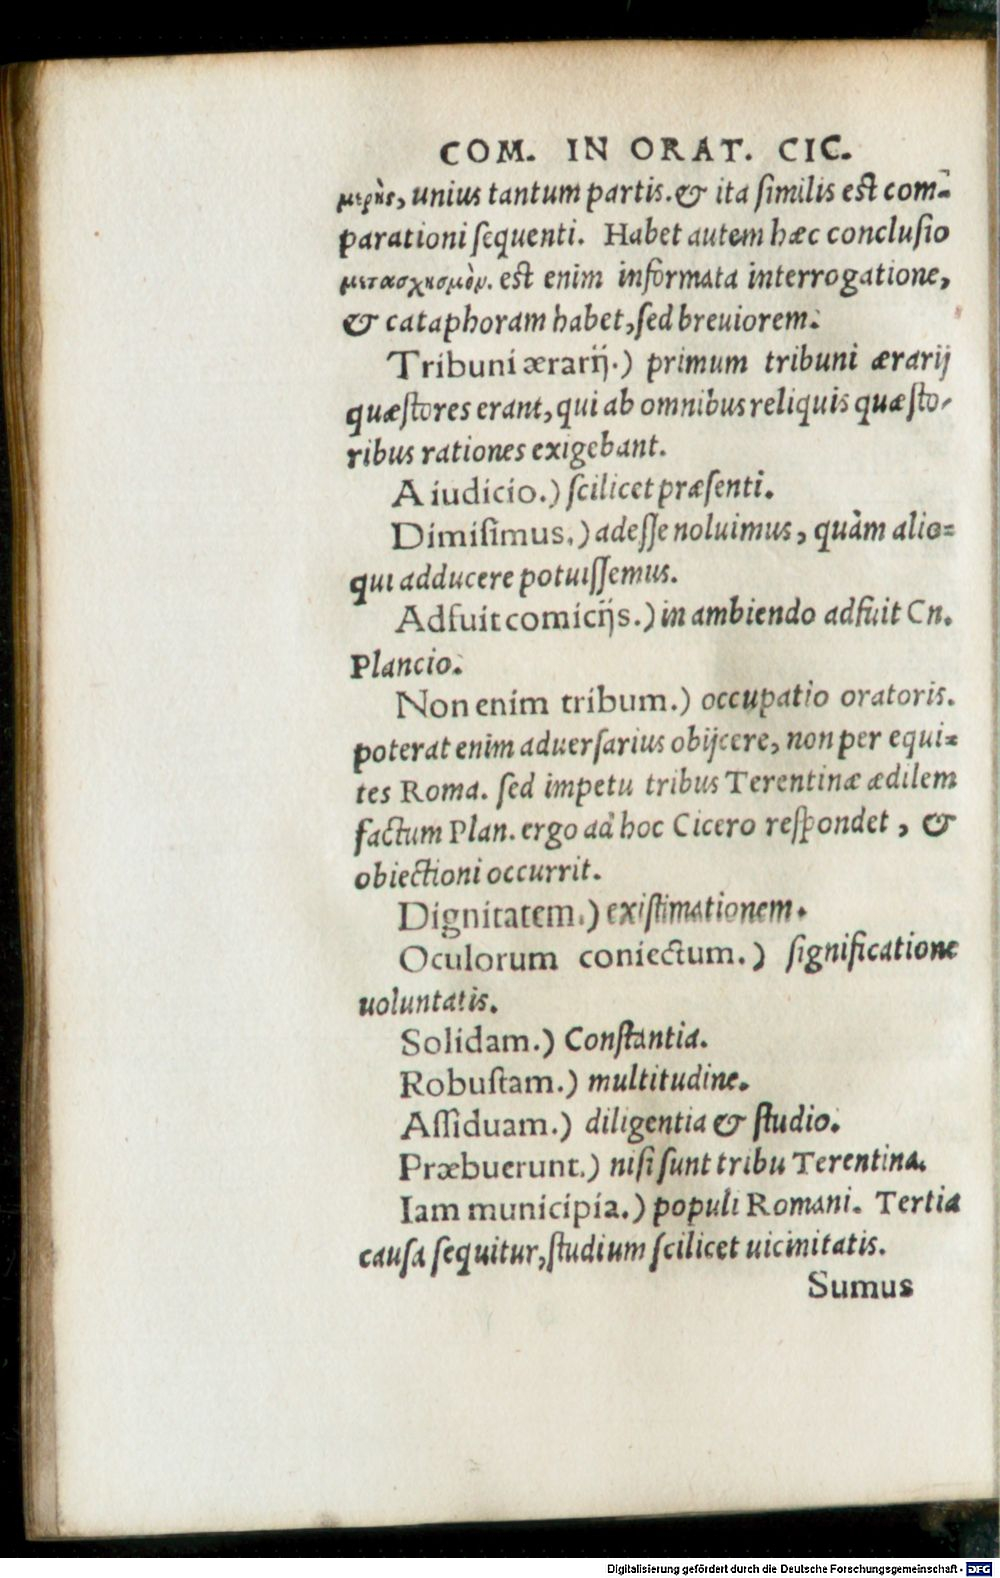 COM. IN ORAT. CIC.
μερὴς, unius tantum partis. & ita similis est com-
parationi sequenti. Habet autem hæc conclusio
μετασχησμὸν. est enim informata interrogatione,
& cataphoram habet, sed breuiorem.
Tribuni ærarij.) primum tribuni ærarij
quæstores erant, qui ab omnibus reliquis quæsto-
ribus rationes exigebant.
A iudicio.) scilicet præsenti.
Dimisimus.) adesse noluimus, quàm alio-
qui adducere potuissemus.
Adfuit comicijs.) in ambiendo adfuit Cn.
Plancio.
Non enim tribum.) occupatio oratoris.
poterat enim aduersarius obijcere, non per equi-
tes Roma. sed impetu tribus Terentinæ ædilem
factum Plan. ergo ad hoc Cicero respondet, &
obiectioni occurrit.
Dignitatem.) existimationem.
Oculorum coniectum.) significatione
uoluntatis.
Solidam.) Constantia.
Robustam.) multitudine.
Assiduam.) diligentia & studio.
Præbuerunt.) nisi sunt tribu Terentina.
Iam municipia.) populi Romani. Tertia
causa sequitur, studium scilicet uicinitatis.
Sumus
Digitalisierung gefördert durch die Deutsche Forschungsgemeinschaft - DFG